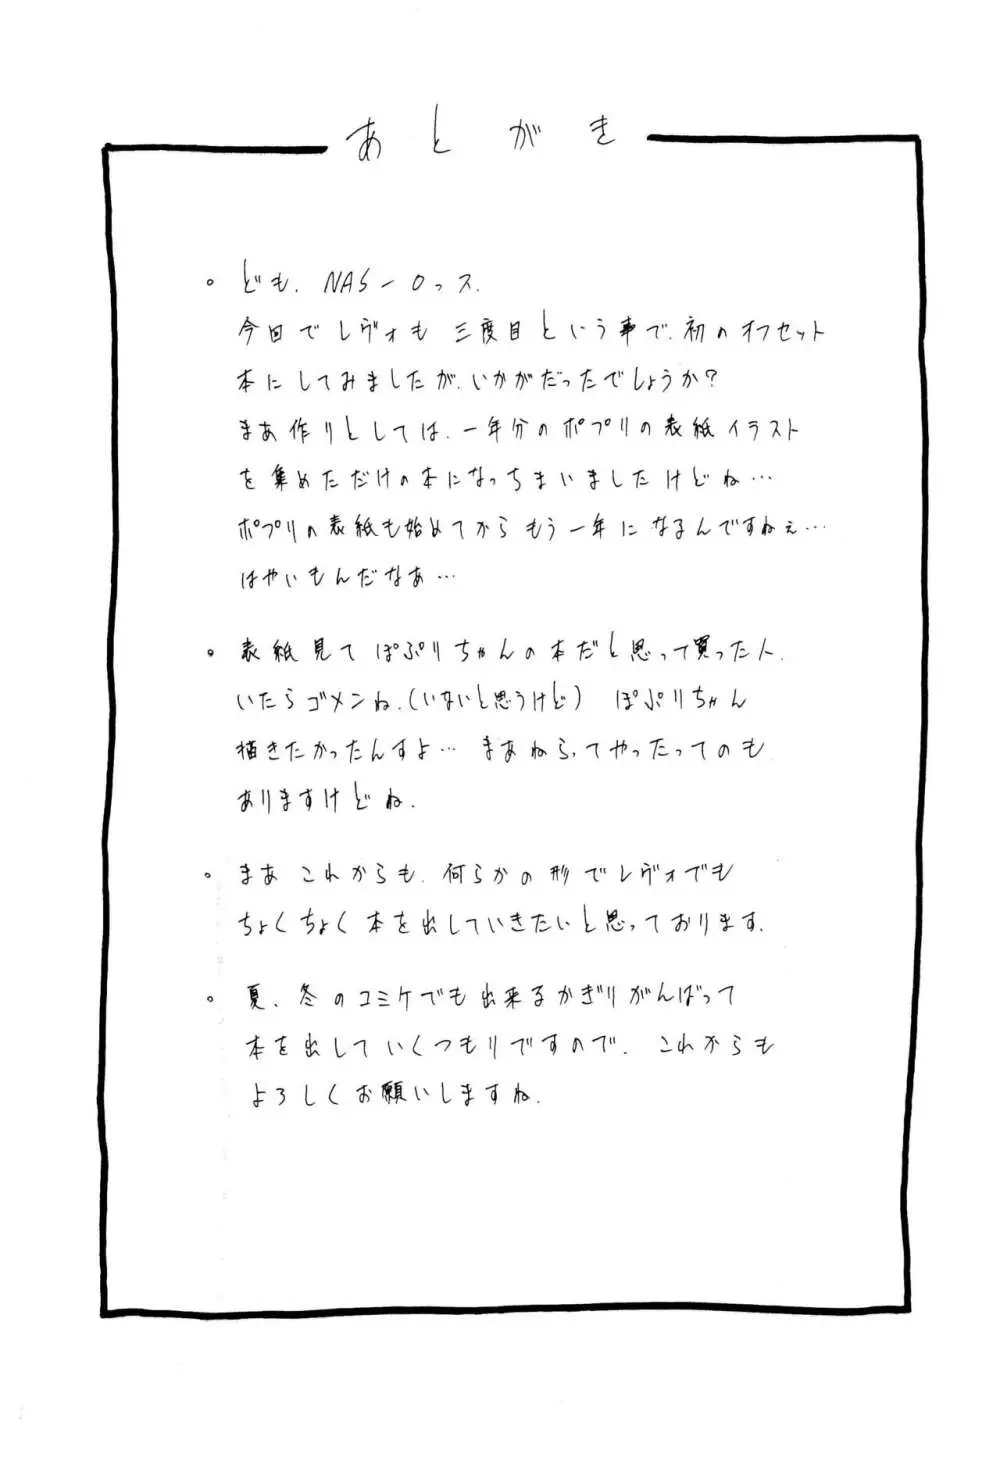 あとがき
。ども、NAS－Oっス.
今回でレヴォも三度目という事で、初のオフセット
本にしてみましたが、いかがだったでしょうか?
まあ作りとしては、一年分のポプリの表紙イラスト
を集めただけの本になっちまいましたけどね…
ポプリの表紙も始めてからもう一年になるんですねぇ…
はやいもんだなあ…
。表紙見てぽぷりちゃんの本だと思って買った人、
いたらゴメンね.(いないと思うけど) ぽぷりちゃん
描きたかったんすよ… まあねらってやったってのも
ありますけどね.
。まあ これからも、何らかの形でレヴォでも
ちょくちょく本を出していきたいと思っております.
。夏、冬のコミケでも出来るかぎりがんばって
本を出していくつもりですので、これからも
よろしくお願いしますね.